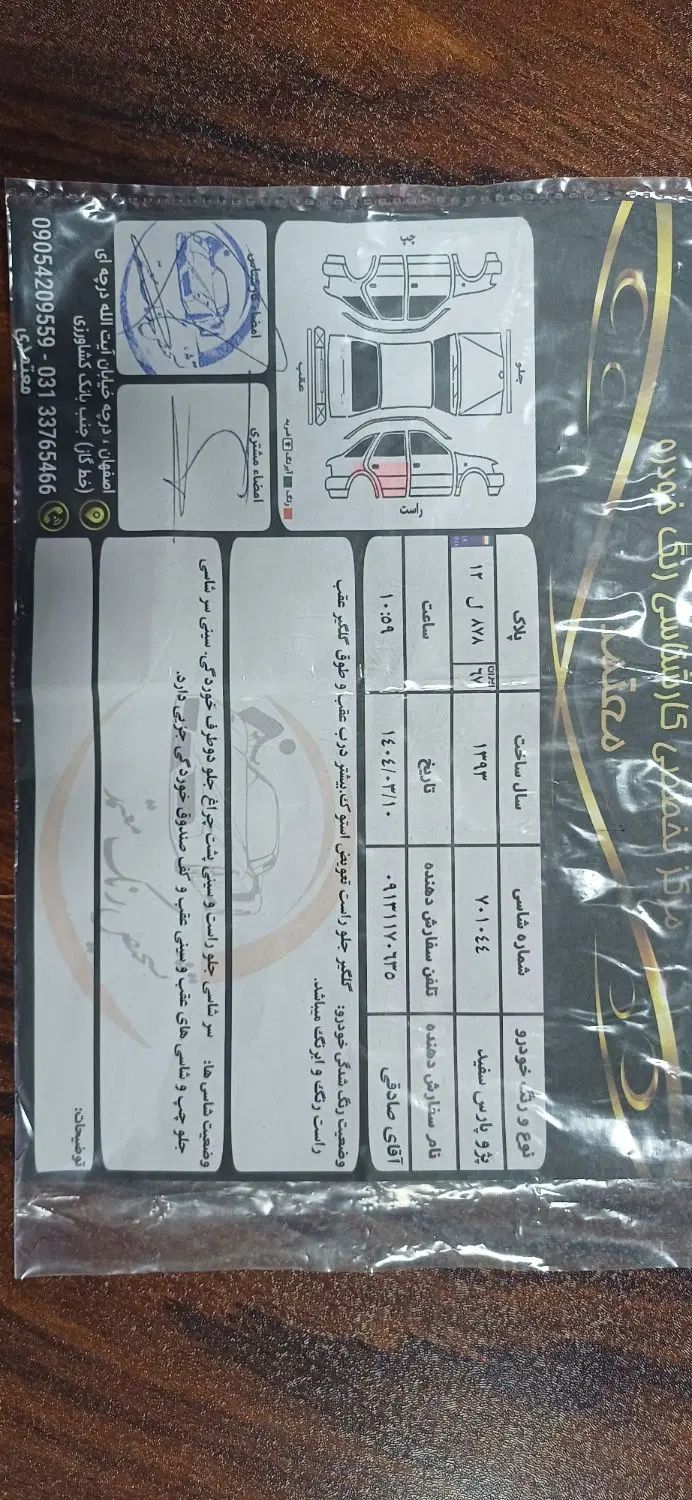 مرکز تخصصی کارشناسی رنگ خودرو
معتمد
نوع و رنگ خودرو
شماره شاسی
سال ساخت
پلاک
پژو پارس سفید
۷۰۱۰٤٤
۱۳۹۳
۱۲ ل ۸۷۸
ایران
۶۷
نام سفارش دهنده
تلفن سفارش دهنده
تاریخ
ساعت
آقای صادقی
۰۹۱۳۱۱۷۰٦۳۵
۱٤۰٤/۰۳/۱۰
۱۰:۵۹
وضعیت رنگ شدگی خودرو: گلگیر جلو راست تعویض استوک.بیشتر درب عقب و طوق گلگیر عقب
راست رنگ و ابرنگ میباشد.
وضعیت شاسی ها: سر شاسی جلو راست و سینی پشت چراغ جلو دوطرف خوردگی. سینی سر شاسی
جلو چپ و شاسی های عقب و سینی عقب و کف صندوق خوردگی جزیی دارد.
توضیحات:
راست
جلو
عقب
چپ
رنگ
آبرنگ
ضربه
امضاء مشتری
امضاء کارشناس
تشخیص رنگ معتمد
اصفهان ، درچه خیابان آیت الله درچه ای
(خط گاز) جنب بانک کشاورزی
09054209559 - 031 33765466
معتمدی